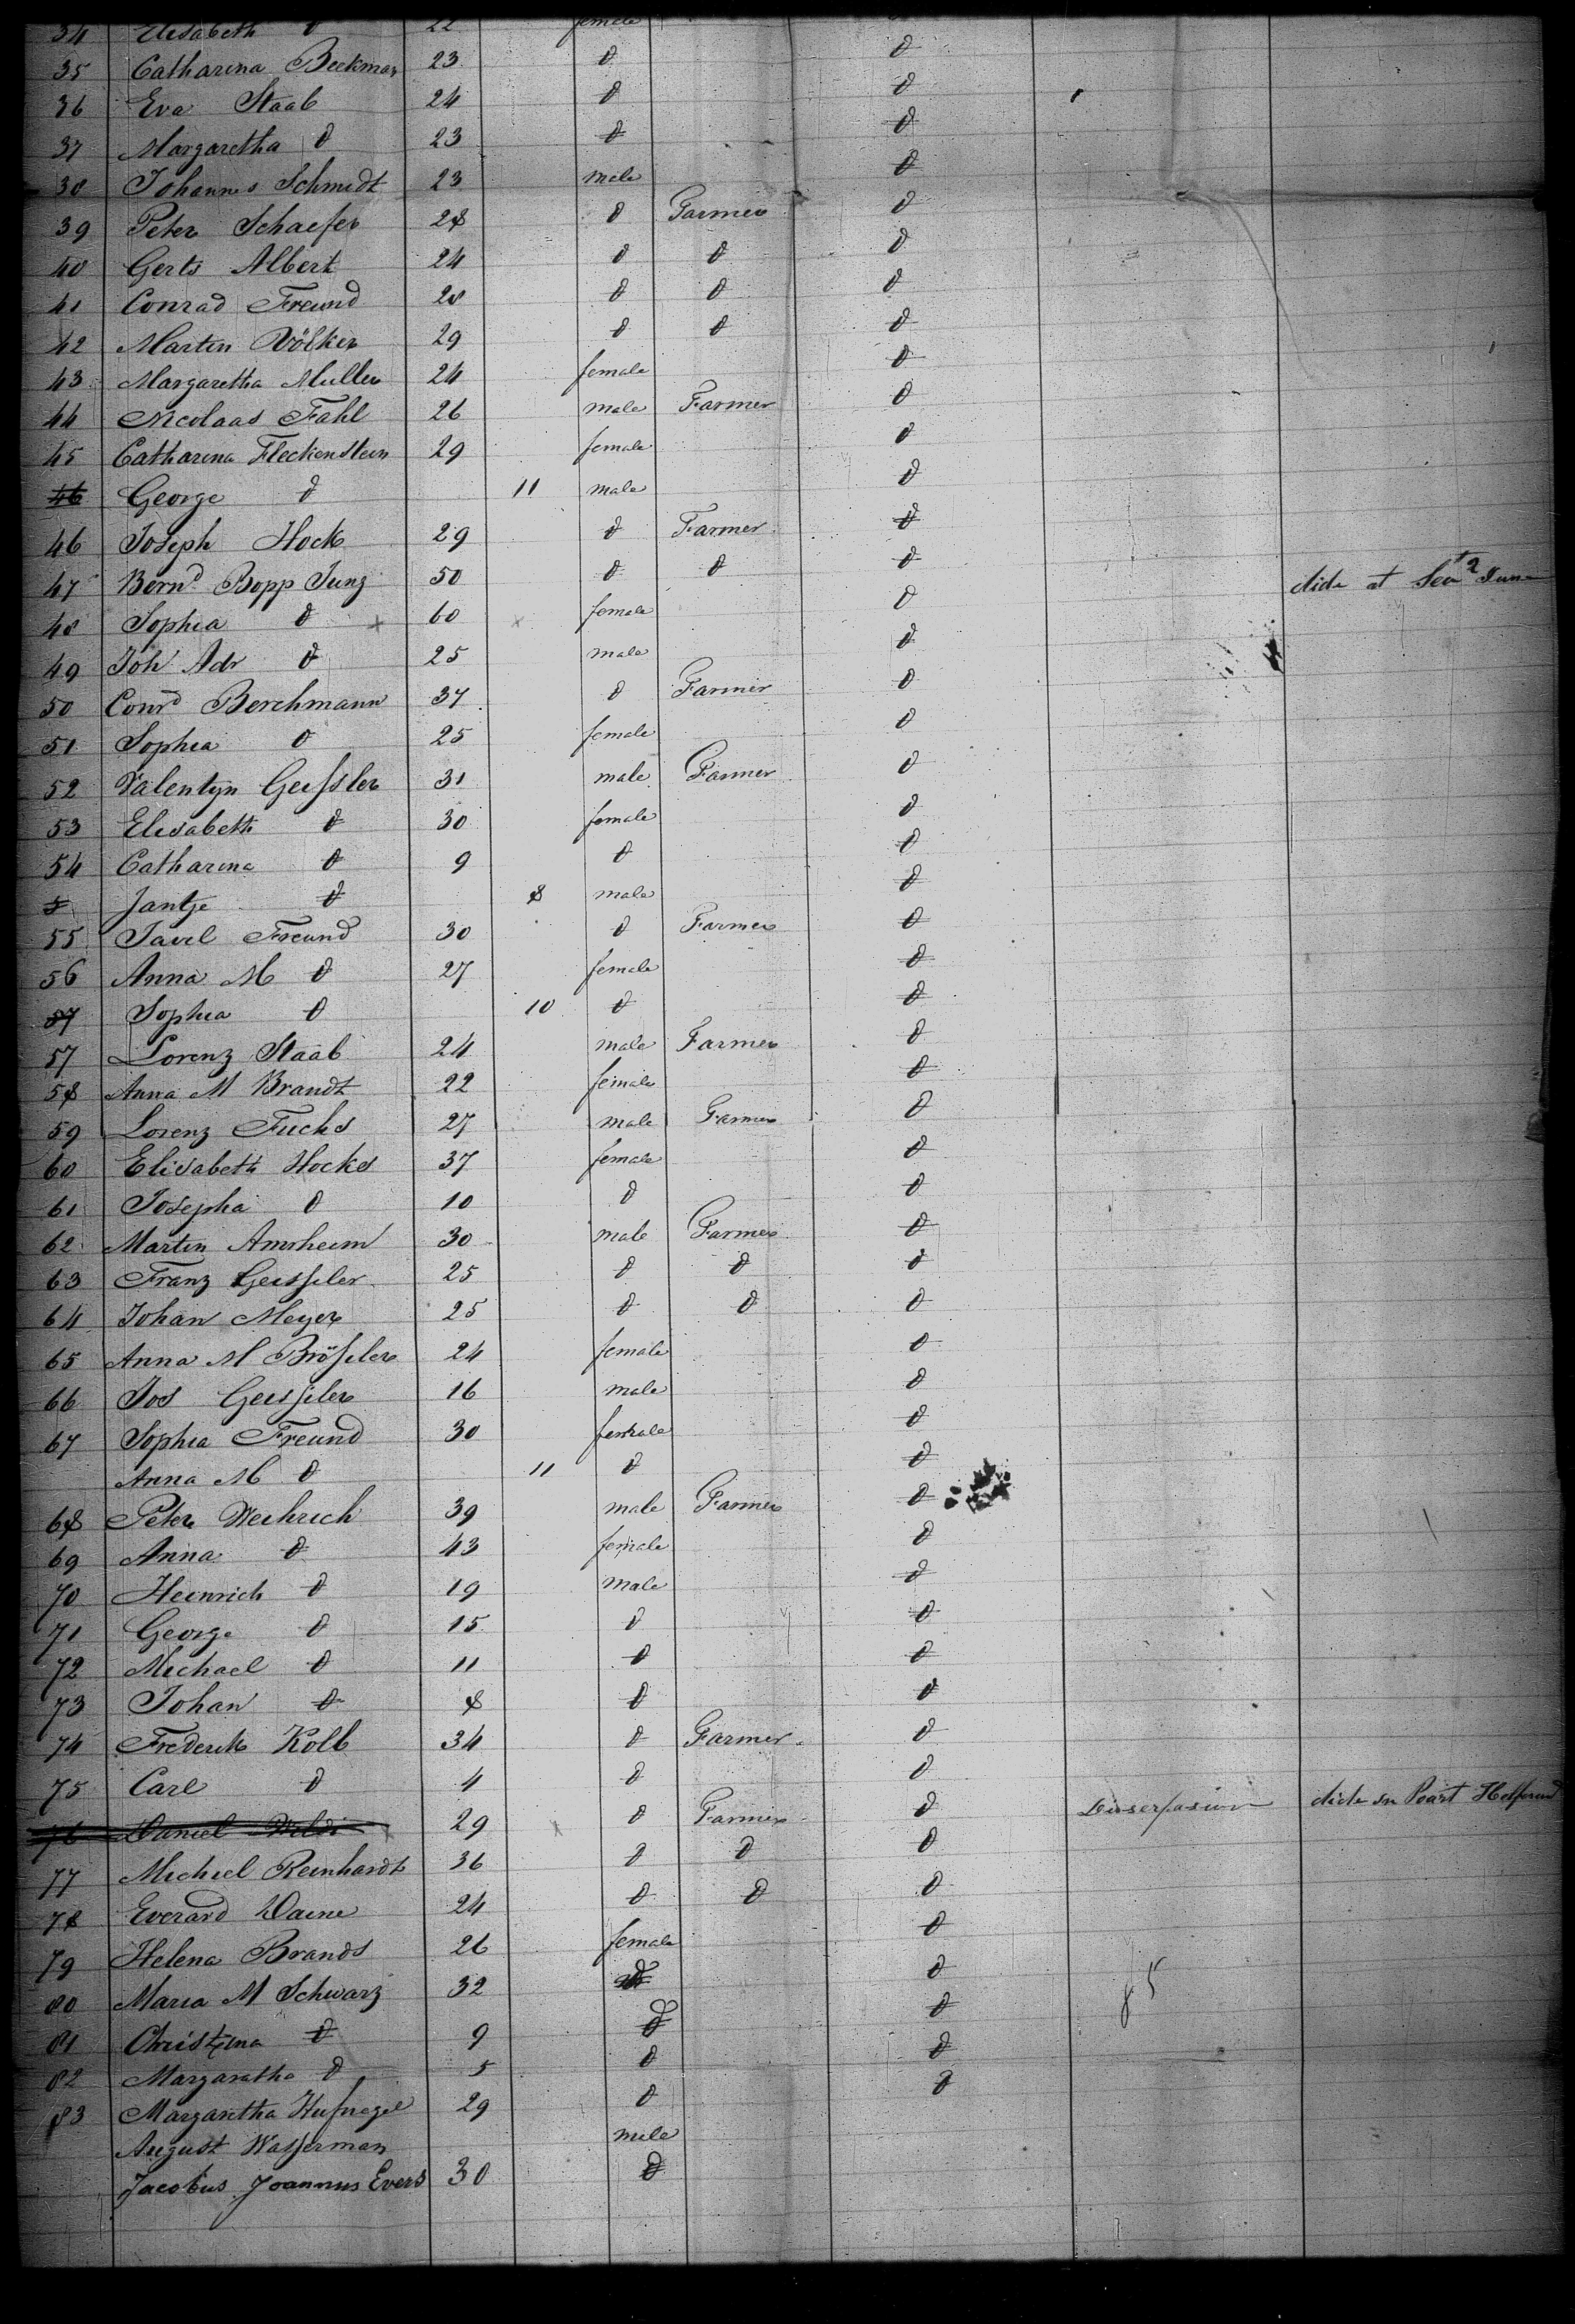 34 Elisabeth d 22 female
35 Catharina Beekman 23 d d
36 Eva Staab 24 d d
37 Margaretha d 23 d d
38 Johannes Schmidt 23 male d
39 Peter Schaefer 28 d Farmer d
40 Gerts Albert 24 d d d
41 Conrad Freund 28 d d d
42 Martin Völker 29 d d d
43 Margaretha Muller 24 female d
44 Nicolaas Fahl 26 male Farmer d
45 Catharina Fleckenstein 29 female d
46 George d 11 male d
46 Joseph Hock 29 d Farmer d
47 Bernd Bopp Jung 50 d d d dide at Sea 2 June
48 Sophia d 60 female d
49 Joh Adr d 25 male d
50 Conrd Berchmann 37 d Farmer d
51 Sophia d 25 female d
52 Valentyn Geissler 31 male Farmer d
53 Elisabeth d 30 female d
54 Catharina d 9 d d
Jantje d 8 male d
55 Pavel Freund 30 d Farmer d
56 Anna M d 27 female d
57 Sophia d 10 d d
57 Lorenz Staab 24 male Farmer d
58 Anna M Brandt 22 female d
59 Lorenz Fuchs 27 male Farmer d
60 Elisabeth Hocks 37 female d
61 Josepha d 10 d d
62 Martin Amrheim 30 male Farmer d
63 Franz Geissler 25 d d d
64 Johan Meyer 25 d d d
65 Anna M Brössler 24 female d
66 Jos Geissler 16 male d
67 Sophia Freund 30 female d
Anna M d 11 d d
68 Peter Weihrich 39 male Farmer d
69 Anna d 43 female d
70 Heinrich d 19 male d
71 George d 15 d d
72 Michael d 11 d d
73 Johan d 8 d d
74 Frederik Kolb 34 d Farmer d
75 Carl d 4 d d
76 Daniel 29 d Farmer d dide in Poart
77 Michiel Reinhardt 36 d d d
78 Everard Daene 24 d d d
79 Helena Brands 26 female d
80 Maria M Schwarz 32 d d
81 Christina d 9 d d
82 Margaratha d 5 d d
83 Margaretha Hufnagel 29 d d
85
August Wasserman male
Jacobus Joannus Evers 30 d